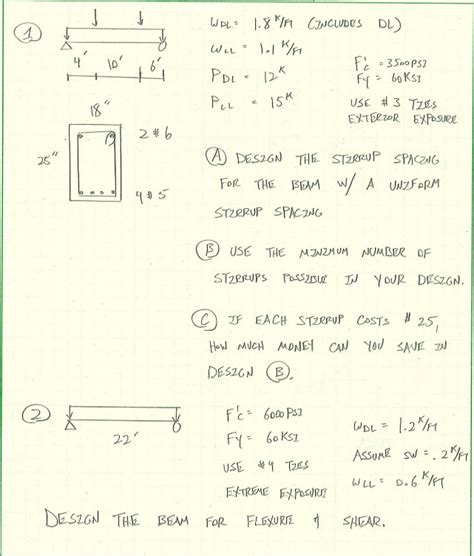 1
WDL = 1.8 K/FT (INCLUDES DL)
WLL = 1.1 K/FT
PDL = 12K
PLL = 15K
F'c = 3500PSI
Fy = 60KSI
USE #3 TIES
EXTERIOR EXPOSURE
4' 10' 6'
18"
25"
2#6
4#5
A DESIGN THE STIRRUP SPACING
FOR THE BEAM W/ A UNIFORM
STIRRUP SPACING
B USE THE MINIMUM NUMBER OF
STIRRUPS POSSIBLE IN YOUR DESIGN.
C IF EACH STIRRUP COSTS $25,
HOW MUCH MONEY CAN YOU SAVE IN
DESIGN B.
2
22'
F'c = 6000PSI
Fy = 60KSI
USE #4 TIES
EXTREME EXPOSURE
WDL = 1.2 K/FT
ASSUME SW = .2 K/FT
WLL = 0.6 K/FT
DESIGN THE BEAM FOR FLEXURE & SHEAR.